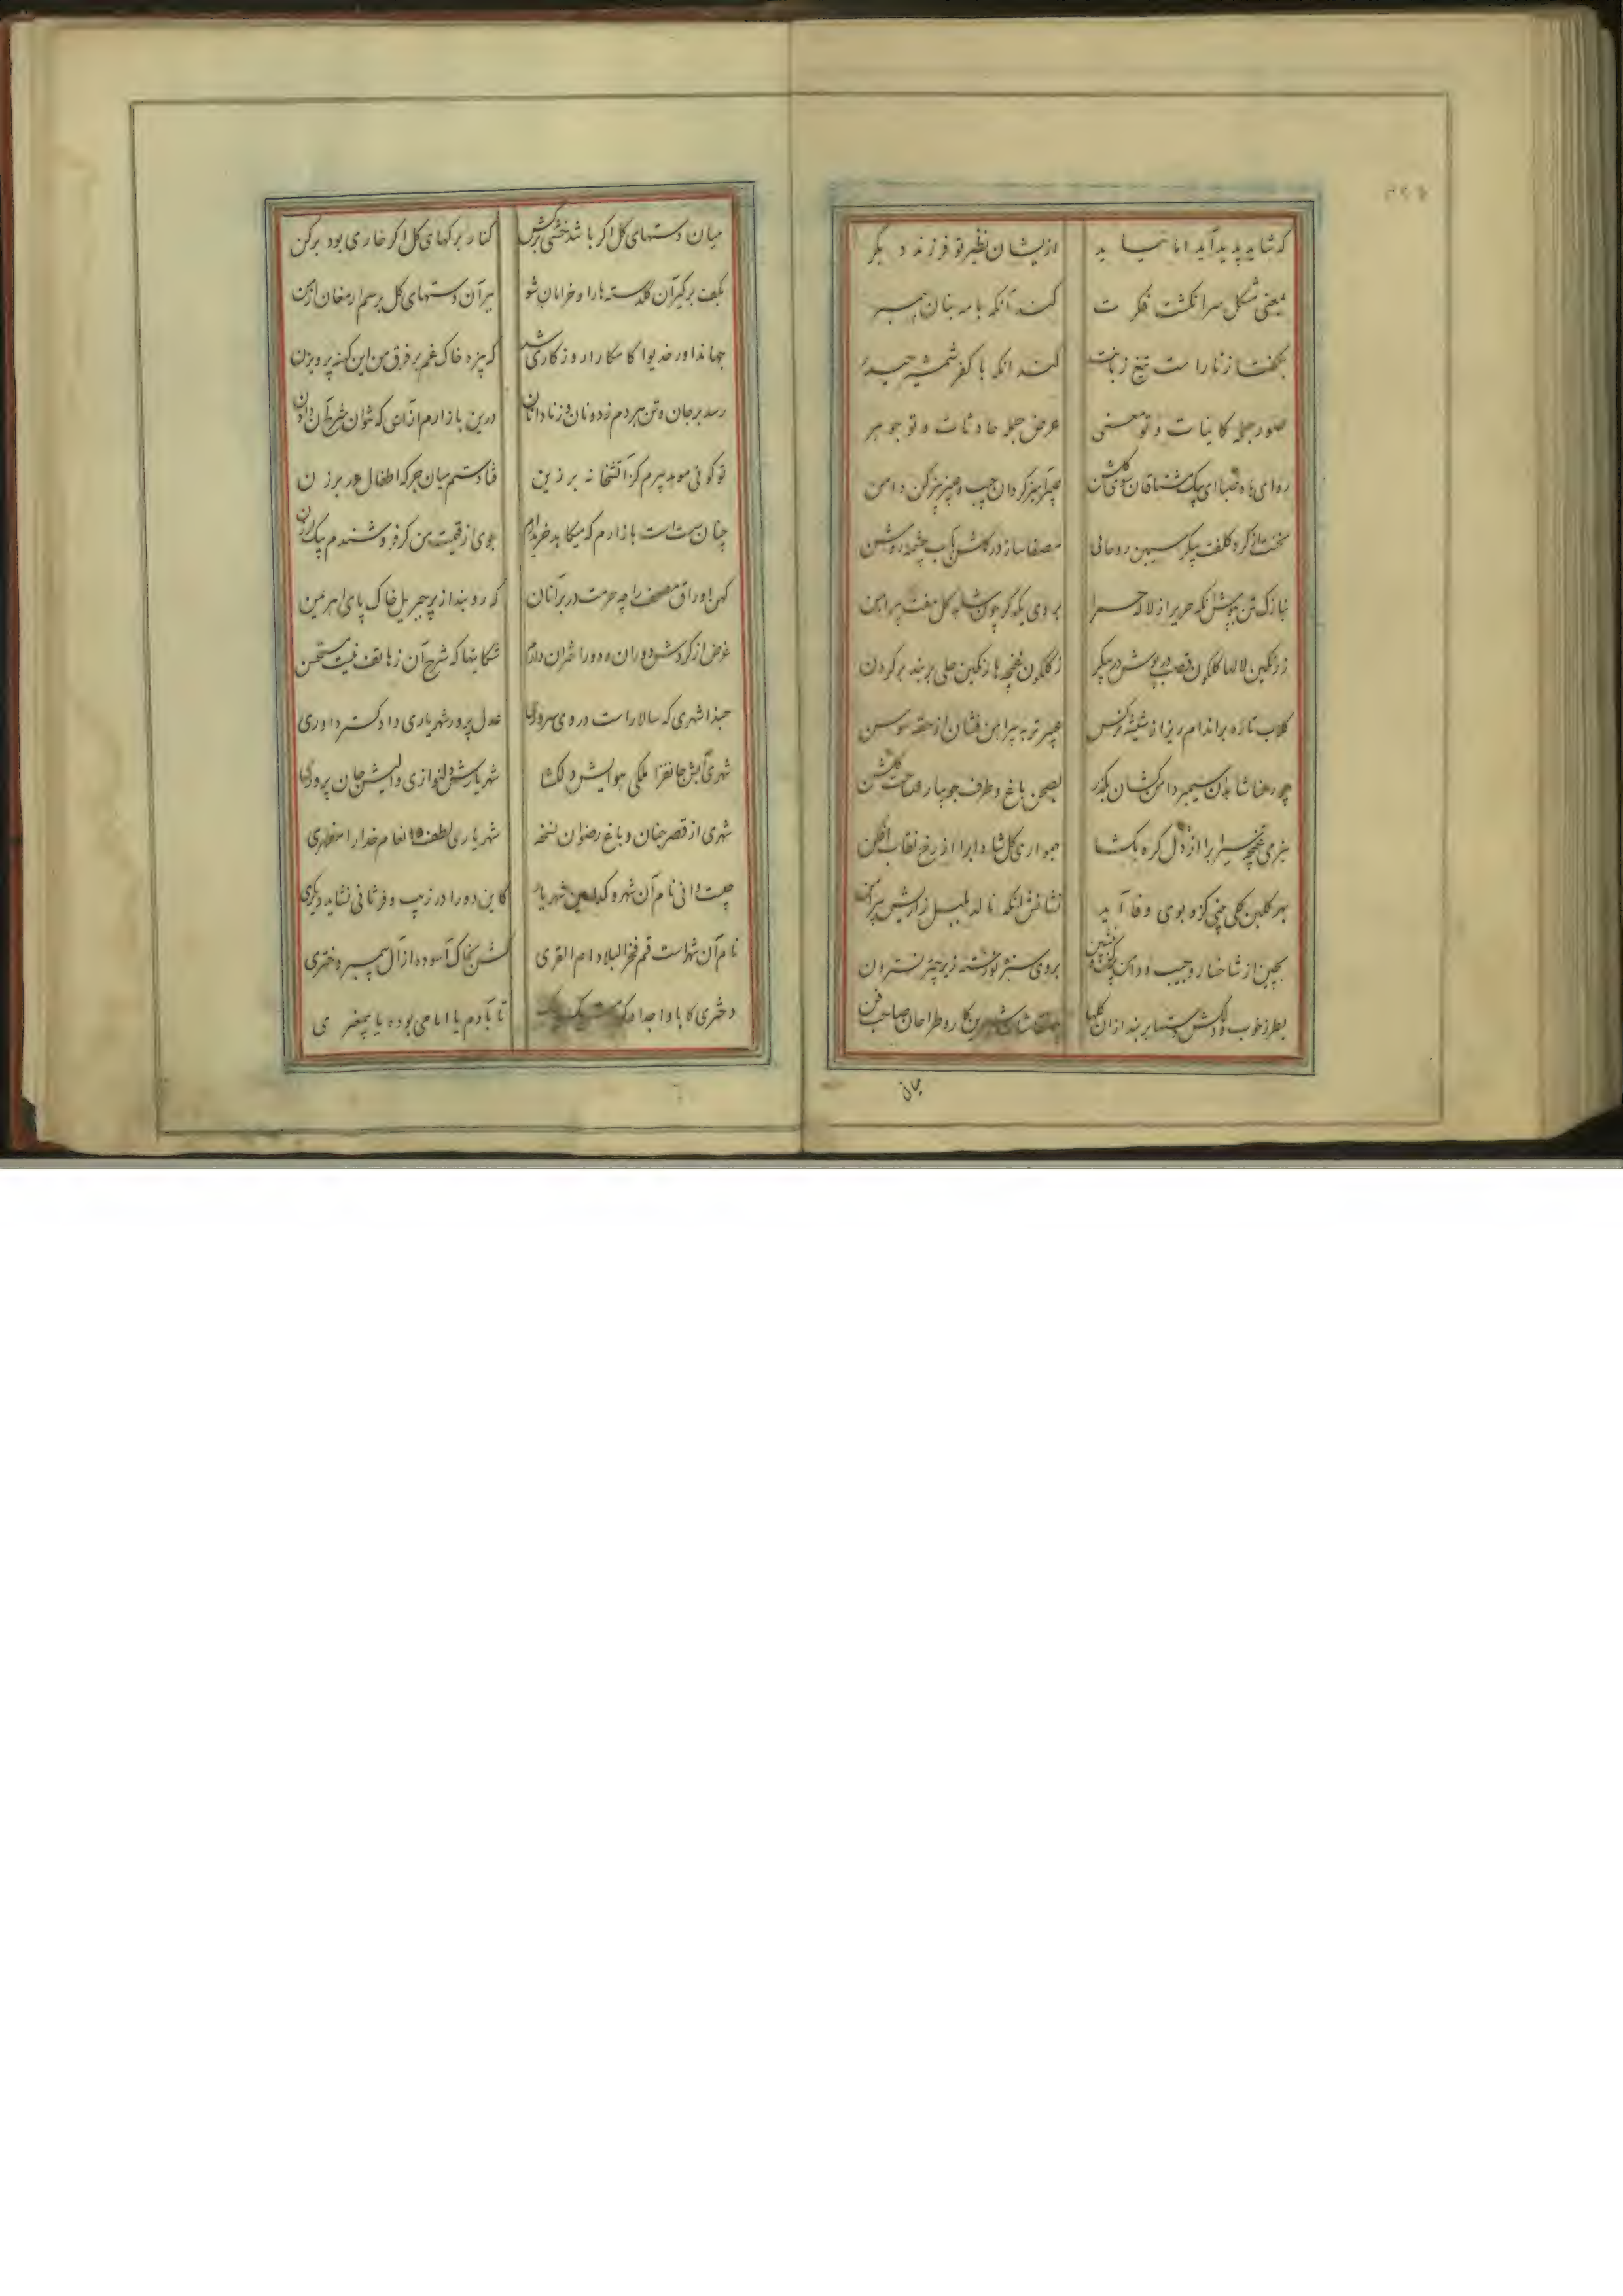 که شاید پدید آید اما نیاید ازیشان نظیر تو فرزند دیگر
بمعنی شکل سرانگشت فکرت کند آنکه با مه بنان پیمبر
بکفت از ثنا راست تیغ زبانت کند انکه با کفر شمشیر حیدر
صور جمله کاینات و تو معنی عرض جمله حادثات و تو جوهر
ای باد صبا ای پیک مشتاقان سوی گلشن عبیرآمیز کردان جیب و عنبربیز کن دامن
نخست از کرد کلفت پیکر سیمین روحانی مصفا ساز در گلشن بآب چشمه روشن
بنازک تن بپوش انکه حریر از لاله حمرا بروی یکدگر چون شاهد کل هفت پیراهن
ز رنکین لالها کلکون قصب درپوش در پیکر ز کلکون غنچه ها رنکین حلی بربند برکردن
کلاب تازه بر اندام ریز از شیشه نرکس عبیر تر به پیراهن فشان از حقه سوسن
چو رعنا شاهدان سیمبر دامن کشان بکذر بصحن باغ و طرف جویبار و ساحت گلشن
بنرمی غنچه سیراب را از دل کره بکشا بهمواری کل شاداب را از رخ نقاب افکن
بهر کلبن کلی بینی کزو بوی وفا آید نشانش انکه نالد بلبل زارش بپیرامن
بچین از شاخسار و جیب و دامن بنشین بروی سبزه نورسته زیر چتر نسترون
بطرز خوب و دلکش دستها بربند از ان کلها چو نقاشان شیرین کار و طراحان صاحب فن
میان
میان دستهای کل اکر باشد خشی برکش کنار برکهای کل اکر خاری بود برکن
بکف برکیر آن کلدسته ها را و خرامان شو ببر آن دستهای کل برسم ارمغان از من
جهاندار خدیوا کامکارا روزکاری شد که بیزد خاک غم بر فرق من این کهنه پرویزن
رسد بر جان و تن هردم ز دونان و ز نادانان درین بازارم آزاری که نتوان شرح آن دادن
تو کوئی موبد پیرم کز آتشخانه برزین فتادستم میان جرکه اطفال در برزن
چنان سست است بازارم که میکاهد خریدارم جوی از قیمت من کر فروشندم بیک ارزن
کهن اوراق مصحف را چه حرمت در بر آنان که روبند از پر جبریل خاک پای اهرمن
غرض از کردش دوران و دور اختران دارم شکایتها که شرح آن ز هاتف نیست مستحسن
حبذا شهری که سالار است در وی سروری عدل پرور شهریاری دادکستر داوری
شهری آبش جانفزا ملکی هوایش دلکشا شهریارش دلنوازی والیش جان پروری
شهری از قصر جنان و باغ رضوان نسخه شهریاری لطف و انعام خدا را مظهری
چیست دانی نام آن شهر و کدامین شهریار کاین دو را در زیب و فر ثانی نشاید دیکری
نام آن شهر است قم فخر البلاد ام القری کش بخاک آسوده از آل پیمبر دختری
دختری کابا و اجداد کرامش یک بیک تا بآدم یا امامی بوده یا پیغمبری